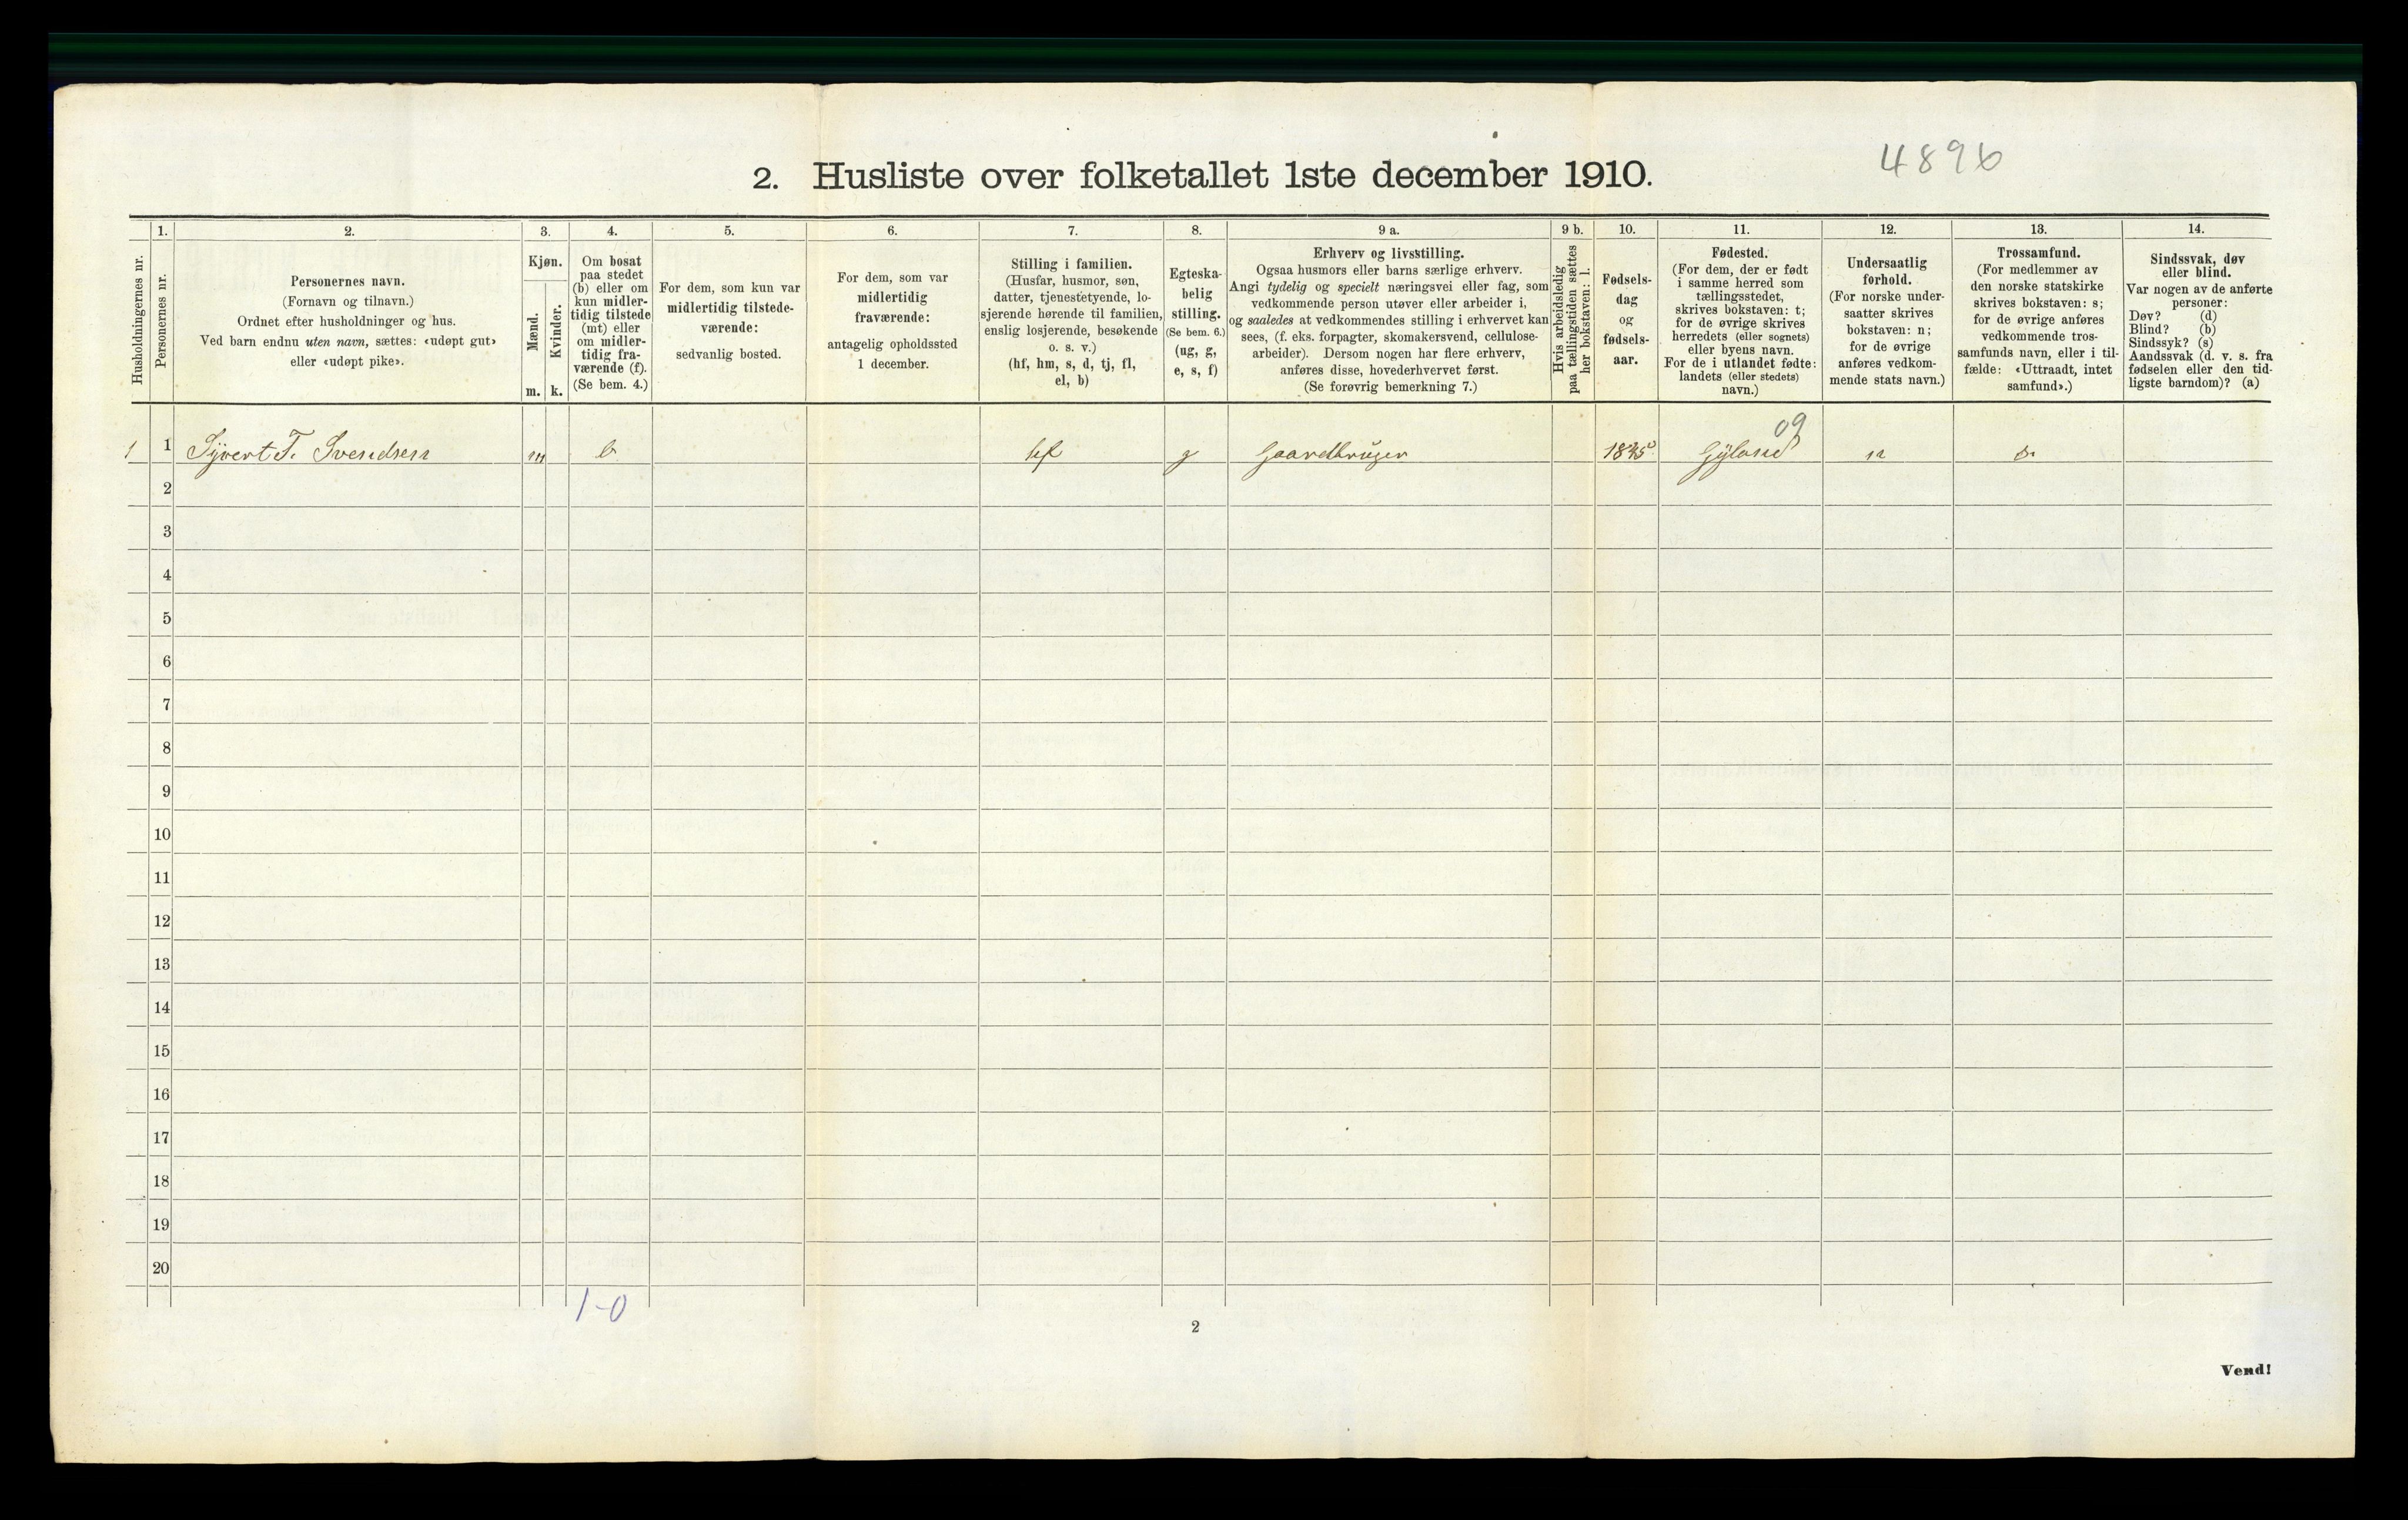 4896
2. Husliste over folketallet 1ste december 1910.
Husholdningernes nr.
1.
Personernes nr.
2.
Personernes navn.
(Fornavn og tilnavn.)
Ordnet efter husholdninger og hus.
Ved barn endnu uten navn, sættes: «udøpt gut»
eller «udøpt pike».
3.
Kjøn.
Mænd.
m.
Kvinder.
k.
4.
Om bosat
paa stedet
(b) eller om
kun midler-
tidig tilstede
(mt) eller
om midler-
tidig fra-
værende (f).
(Se bem. 4.)
5.
For dem, som kun var
midlertidig tilstede-
værende:
sedvanlig bosted.
6.
For dem, som var
midlertidig
fraværende:
antagelig opholdssted
1 december.
7.
Stilling i familien.
(Husfar, husmor, søn,
datter, tjenestetyende, lo-
sjerende hørende til familien,
enslig losjerende, besøkende
o. s. v.)
(hf, hm, s, d, tj, fl,
el, b)
8.
Egteska-
belig
stilling.
(Se bem. 6.)
(ug, g,
e, s, f)
9 a.
Erhverv og livsstilling.
Ogsaa husmors eller barns særlige erhverv.
Angi tydelig og specielt næringsvei eller fag, som
vedkommende person utøver eller arbeider i,
og saaledes at vedkommendes stilling i erhvervet kan
sees, (f. eks. forpagter, skomakersvend, cellulose-
arbeider). Dersom nogen har flere erhverv,
anføres disse, hovederhvervet først.
(Se forøvrig bemerkning 7.)
9 b.
Hvis arbeidsledig
paa tællingstiden sættes
her bokstaven: l.
10.
Fødsels-
dag
og
fødsels-
aar.
11.
Fødested.
(For dem, der er født
i samme herred som
tællingsstedet,
skrives bokstaven: t;
for de øvrige skrives
herredets (eller sognets)
eller byens navn.
For de i utlandet fødte:
landets (eller stedets)
navn.)
12.
Undersaatlig
forhold.
(For norske under-
saatter skrives
bokstaven: n;
for de øvrige
anføres vedkom-
mende stats navn.)
13.
Trossamfund.
(For medlemmer av
den norske statskirke
skrives bokstaven: s;
for de øvrige anføres
vedkommende tros-
samfunds navn, eller i til-
fælde: «Uttraadt, intet
samfund».)
14.
Sindssvak, døv
eller blind.
Var nogen av de anførte
personer:
Døv? (d)
Blind? (b)
Sindssyk? (s)
Aandssvak (d. v. s. fra
fødselen eller den tid-
ligste barndom)? (a)
09
1 1 Syvert T. Svendsen m b hf g Gaardbruger Gyland n s
2
3
4
5
6
7
8
9
10
11
12
13
14
15
16
17
18
19
20
1-0
2
Vend!